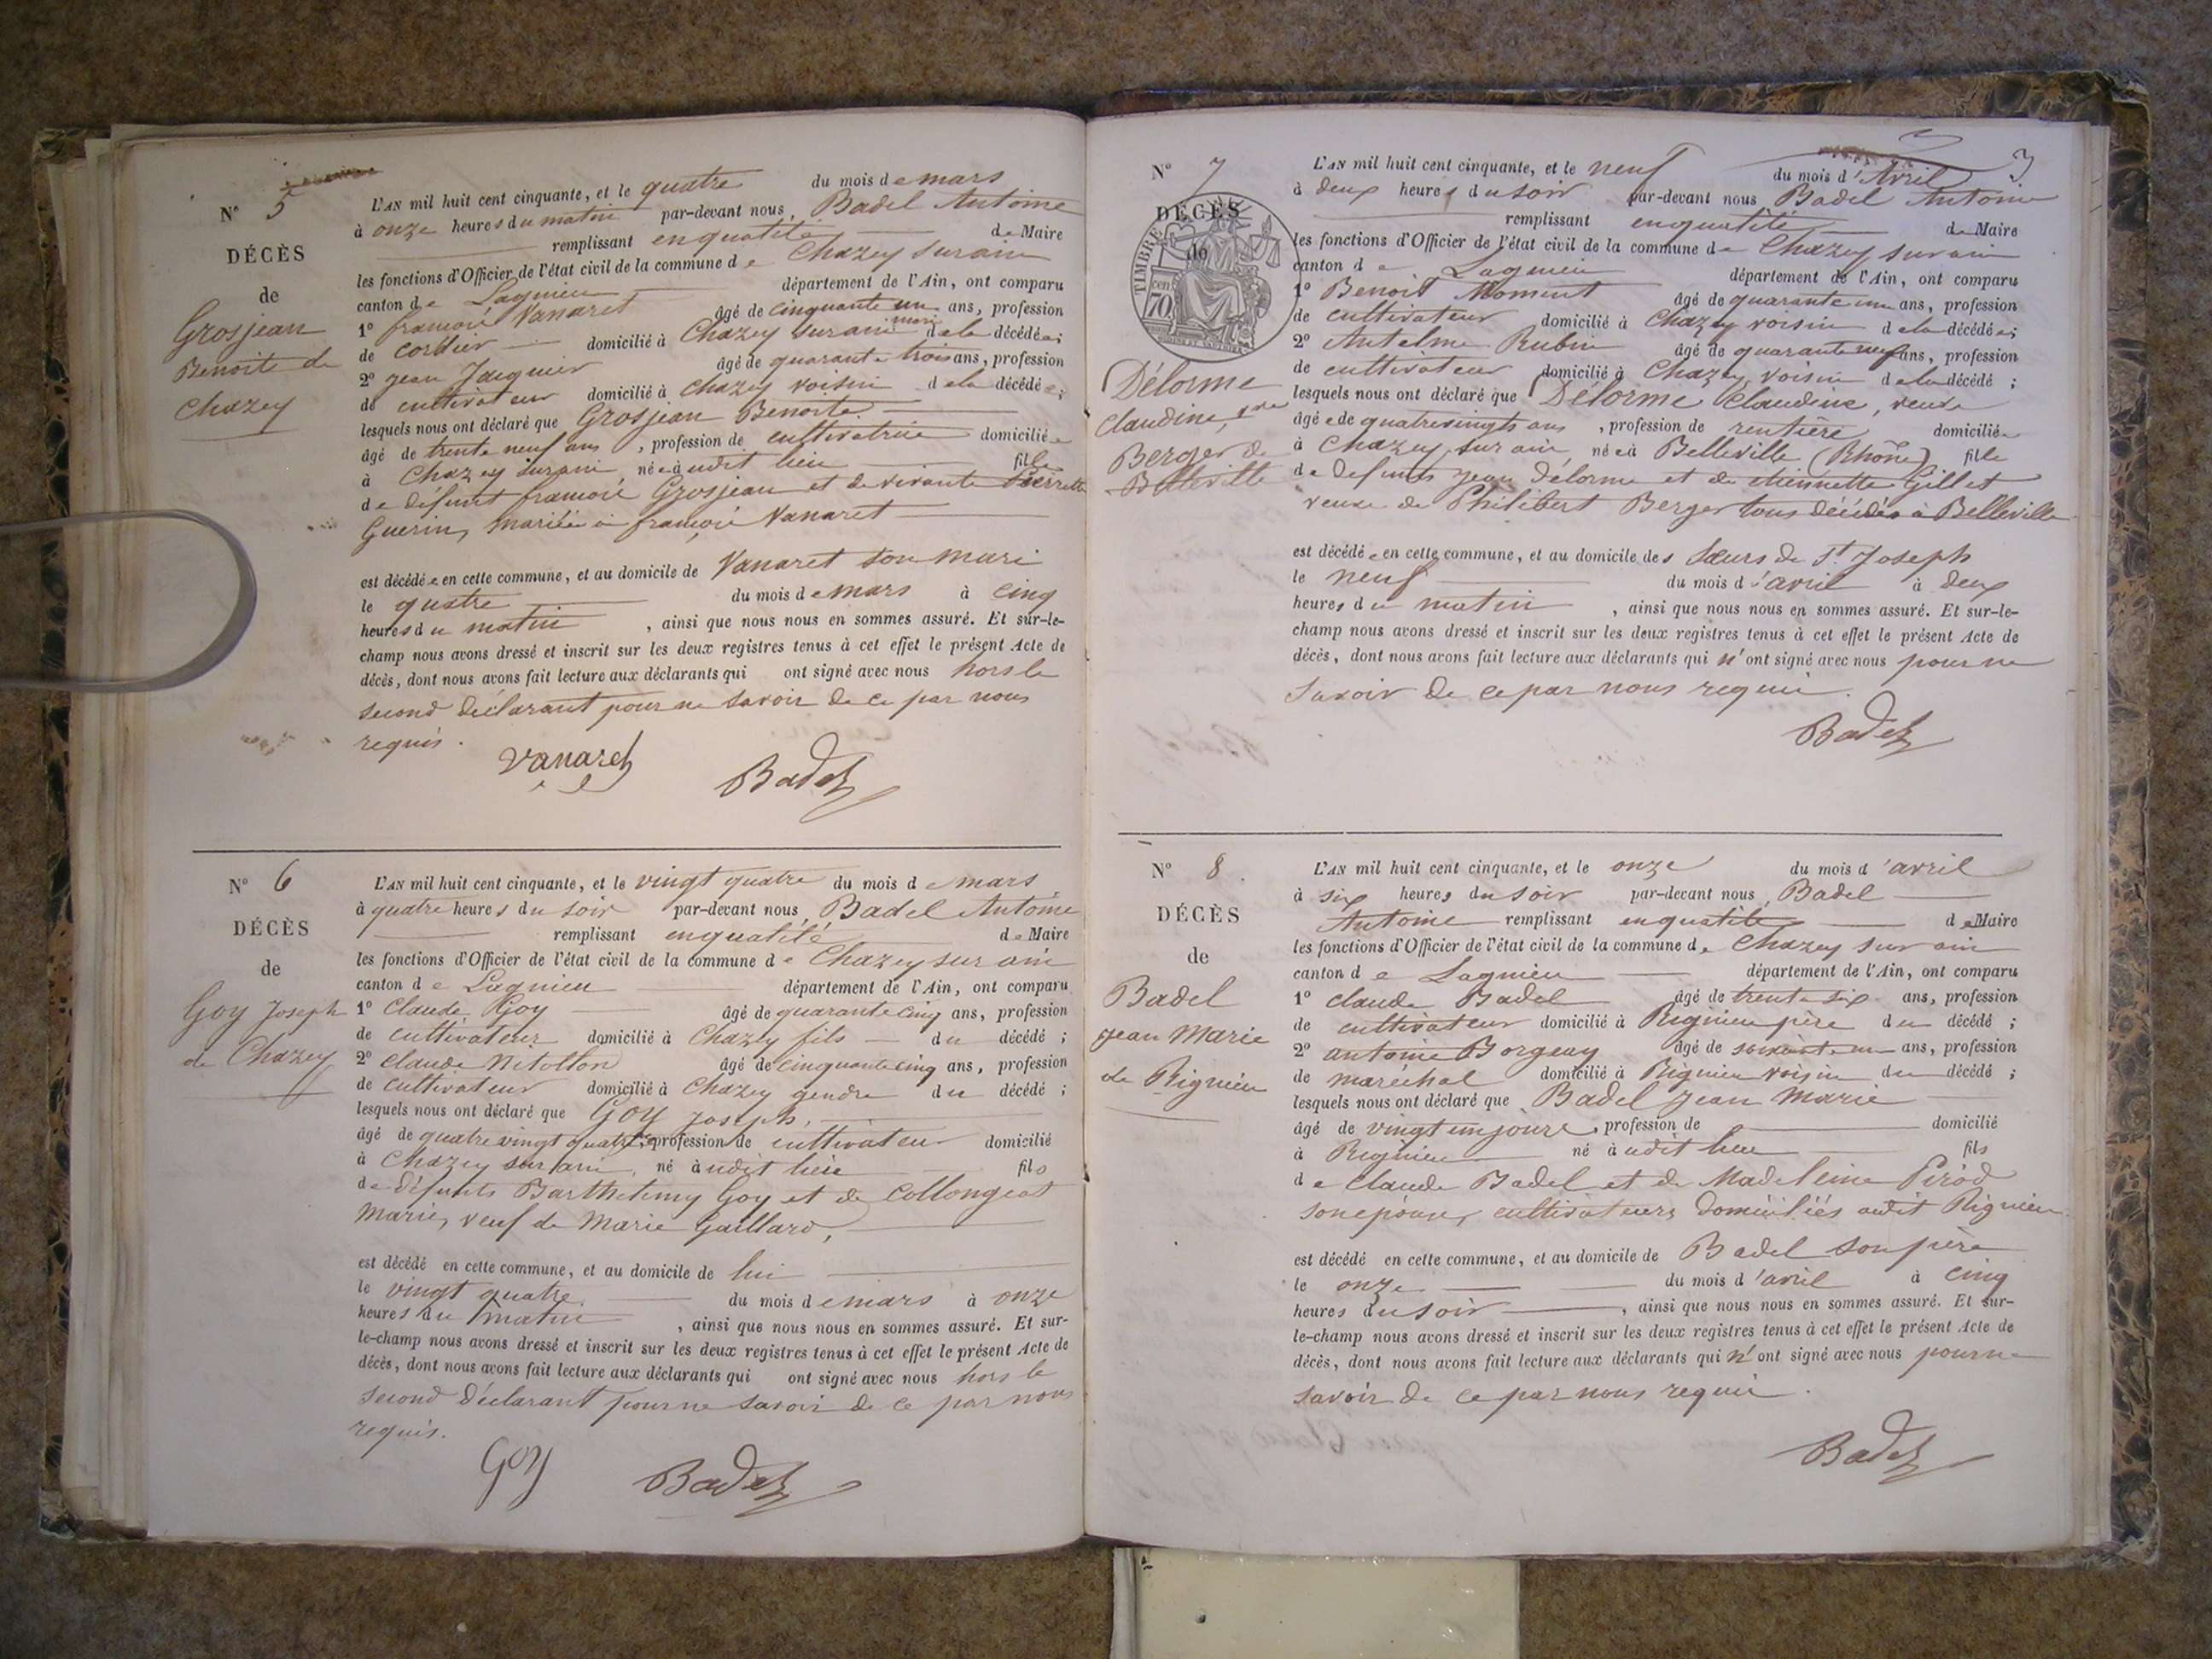 N° 5
DÉCÈS
de
Grosjean
Benoite de
Chazey
L'AN mil huit cent cinquante, et le quatre du mois de mars
à onze heures du matin par-devant nous, Badel Antoine
remplissant en qualité de Maire
les fonctions d'Officier de l'état civil de la commune de Chazey sur ain
canton de Lagnieu département de l'Ain, ont comparu
1° françois Vanaret âgé de cinquante un ans, profession
de cordier domicilié à Chazey sur ain mari de la décédée;
2° jean Jacquier âgé de quarante trois ans, profession
de cultivateur domicilié à Chazey voisin de la décédée;
lesquels nous ont déclaré que Grosjean Benoite
âgé de trente neuf ans, profession de cultivatrice domiciliée
à Chazey sur ain, née audit lieu fille
de défunt françois Grosjean et de vivante Pierrette
Guerin, mariée à françois Vanaret
est décédée en cette commune, et au domicile de Vanaret son mari
le quatre du mois de mars à cinq
heures du matin, ainsi que nous nous en sommes assuré. Et sur-le-
champ nous avons dressé et inscrit sur les deux registres tenus à cet effet le présent Acte de
décès, dont nous avons fait lecture aux déclarants qui ont signé avec nous hors le
second déclarant pour ne savoir de ce par nous
requis.
Vanaret Badel
N° 6
DÉCÈS
de
Goy Joseph
de Chazey
L'AN mil huit cent cinquante, et le vingt quatre du mois de mars
à quatre heures du soir par-devant nous, Badel Antoine
remplissant en qualité de Maire
les fonctions d'Officier de l'état civil de la commune de Chazey sur ain
canton de Lagnieu département de l'Ain, ont comparu
1° Claude Goy âgé de quarante cinq ans, profession
de cultivateur domicilié à Chazey fils du décédé;
2° Claude Nitollon âgé de cinquante cinq ans, profession
de cultivateur domicilié à Chazey gendre du décédé;
lesquels nous ont déclaré que Goy Joseph,
âgé de quatre vingt quatre, profession de cultivateur domicilié
à Chazey sur ain, né audit lieu fils
de défunts Barthelemy Goy et de Collongeat
Marie, veuf de Marie Gaillard,
est décédé en cette commune, et au domicile de lui
le vingt quatre du mois de mars à onze
heures du matin, ainsi que nous nous en sommes assuré. Et sur-
le-champ nous avons dressé et inscrit sur les deux registres tenus à cet effet le présent Acte de
décès, dont nous avons fait lecture aux déclarants qui ont signé avec nous hors le
second déclarant pour ne savoir de ce par nous
requis.
Goy Badel
3
N° 7
DÉCÈS
de
TIMBRE
70 cen
Délorme
Claudine, vve
Berger de
Belleville
L'AN mil huit cent cinquante, et le neuf du mois d'Avril
à deux heures du soir par-devant nous Badel Antoine
remplissant en qualité de Maire
les fonctions d'Officier de l'état civil de la commune de Chazey sur ain
canton de Lagnieu département de l'Ain, ont comparu
1° Benoit Moment âgé de quarante un ans, profession
de cultivateur domicilié à Chazey voisin de la décédée;
2° Antelme Rubin âgé de quarante neuf ans, profession
de cultivateur domicilié à Chazey, voisin de la décédé;
lesquels nous ont déclaré que Délorme Claudine, veuve
âgée de quatre vingts ans, profession de rentière domiciliée
à Chazey sur ain, née à Belleville (Rhône) fille
de défunts Jean Délorme et de etiennette Gillet
veuve de Philibert Berger tous décédés à Belleville
est décédée en cette commune, et au domicile des Sœurs de St Joseph
le neuf du mois d'avril à deux
heures du matin, ainsi que nous nous en sommes assuré. Et sur-le-
champ nous avons dressé et inscrit sur les deux registres tenus à cet effet le présent Acte de
décès, dont nous avons fait lecture aux déclarants qui n'ont signé avec nous pour ne
savoir de ce par nous requis.
Badel
N° 8.
DÉCÈS
de
Badel
Jean Marie
de Rignieu
L'AN mil huit cent cinquante, et le onze du mois d'avril
à six heures du soir par-devant nous, Badel
Antoine remplissant en qualité de Maire
les fonctions d'Officier de l'état civil de la commune de Chazey sur ain
canton de Lagnieu département de l'Ain, ont comparu
1° claude Badel âgé de trente six ans, profession
de cultivateur domicilié à Rignieu père du décédé;
2° antoine Borgeay âgé de soixante un ans, profession
de maréchal domicilié à Rignieu voisin du décédé;
lesquels nous ont déclaré que Badel Jean Marie
âgé de vingt un jours, profession de domicilié
à Rignieu né audit lieu fils
de Claude Badel et de Madeleine Pirod
son épouse, cultivateurs domiciliés audit Rignieu
est décédé en cette commune, et au domicile de Badel son père
le onze du mois d'avril à cinq
heures du soir, ainsi que nous nous en sommes assuré. Et sur-
le-champ nous avons dressé et inscrit sur les deux registres tenus à cet effet le présent Acte de
décès, dont nous avons fait lecture aux déclarants qui n'ont signé avec nous pour ne
savoir de ce par nous requis.
Badel